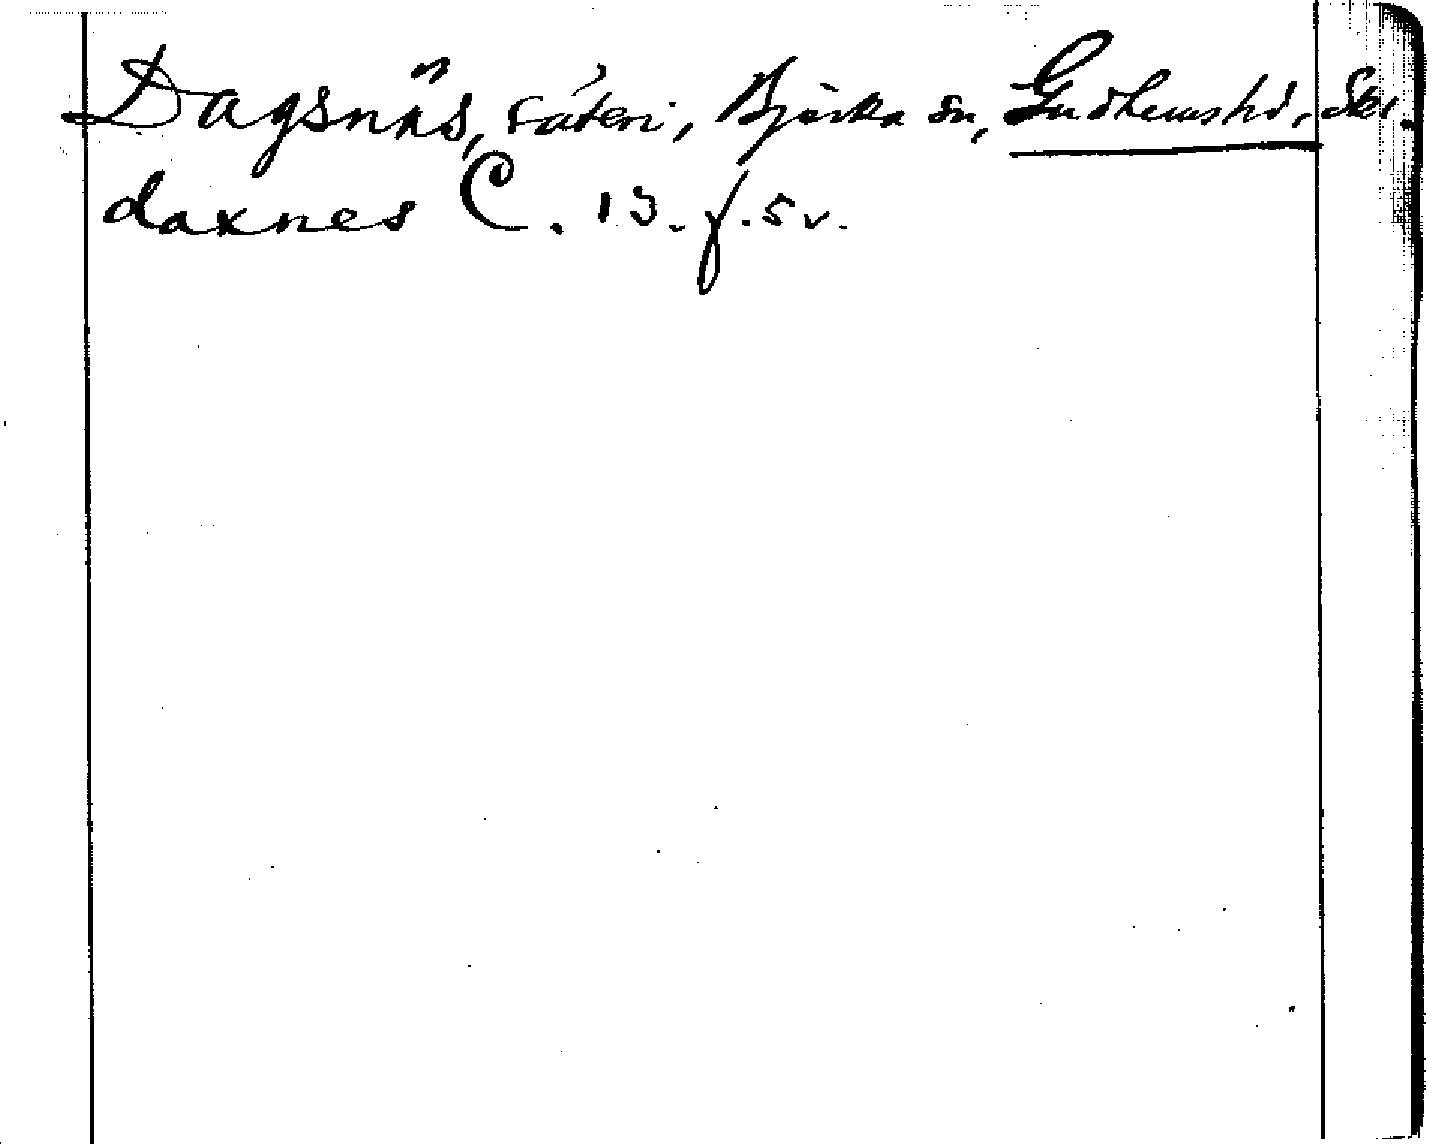 Dagsnäs, säteri, Björka sn, Gudhemshd, Skbl.
daxnes C. 13. f. 5 v.